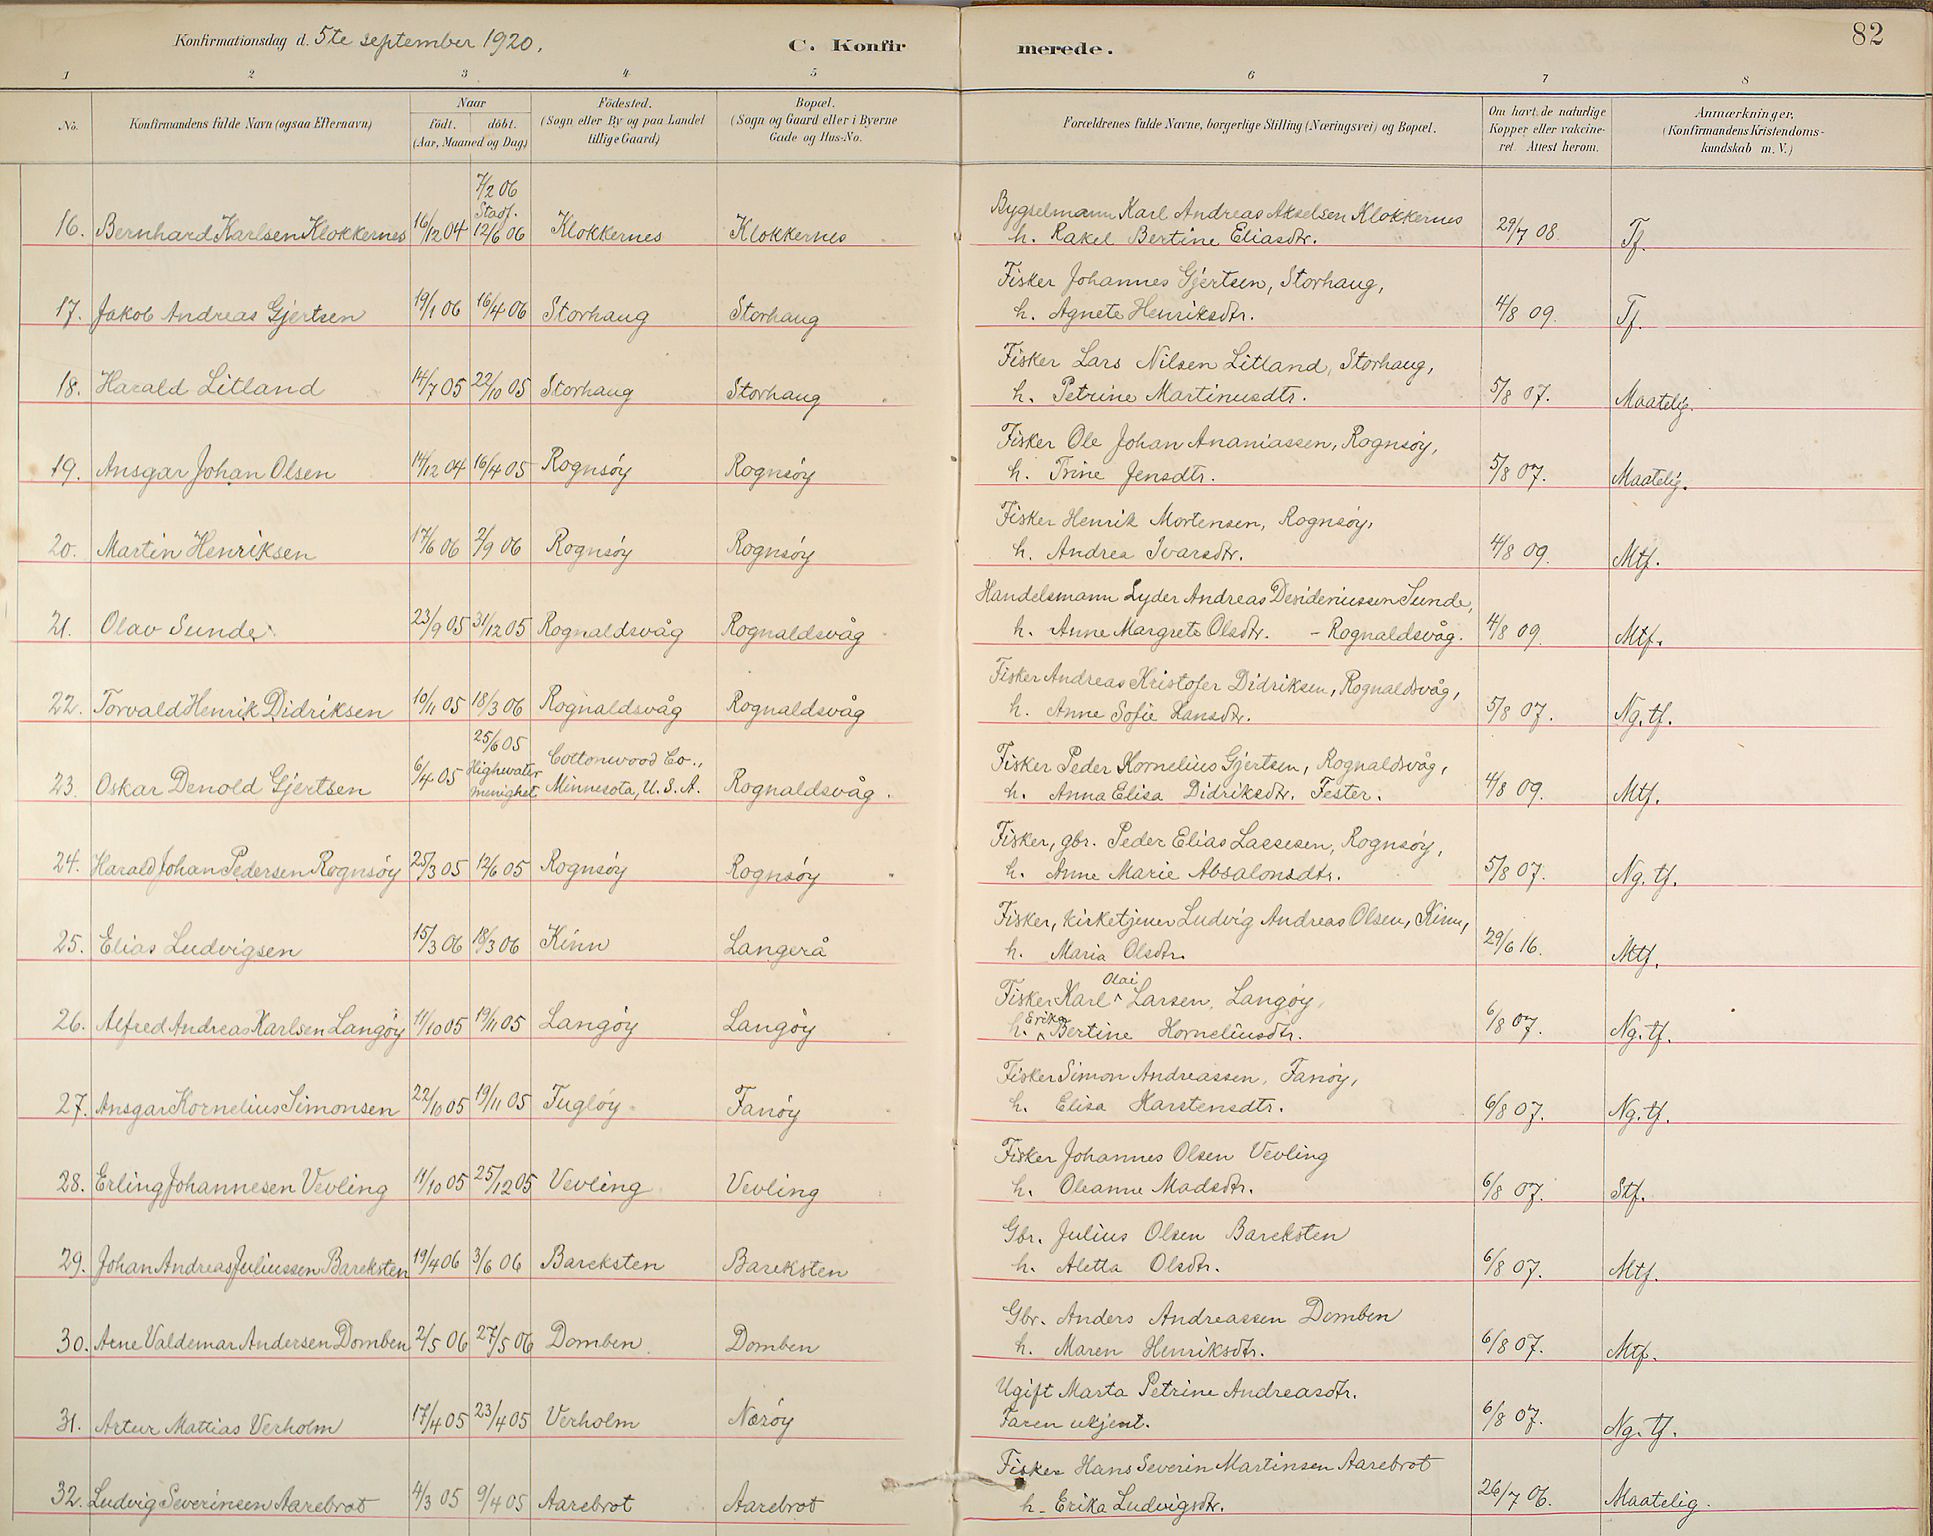 Konfirmationsdag d. 5te september 1920.
C. Konfirmerede.
82
1 2 3 4 5 6 7 8
No. Konfirmandens fulde Navn (ogsaa Efternavn) Naar födt. döbt. (Aar, Maaned og Dag) Födested. (Sogn eller By og paa Landet tillige Gaard) Bopæl. (Sogn og Gaard eller i Byerne Gade og Hus-No. Forældrenes fulde Navne, borgerlige Stilling (Næringsvei) og Bopæl. Om havt de naturlige Kopper eller vakcineret. Attest herom. Anmærkninger, (Konfirmandens Kristendomskundskab m. V.)
7/2 06
Stadf.
16. Bernhard Karlsen Klokkernes 16/12 04 12/6 06 Klokkernes Klokkernes Bygselmann Karl Andreas Akselsen Klokkernes
h. Rakel Bertine Eliasdtr. 29/7 08. Tf.
17. Jakob Andreas Gjertsen 19/1 06 16/4 06 Storhaug Storhaug Fisker Johannes Gjertsen, Storhaug,
h. Agnete Henriksdtr. 4/8 09. Tf.
18. Harald Litland 14/7 05 22/10 05 Storhaug Storhaug Fisker Lars Nilsen Litland, Storhaug,
h. Petrine Martinusdtr. 5/8 07. Maatelig.
19. Ansgar Johan Olsen 14/12 04 16/4 05 Rognsöy Rognsöy Fisker Ole Johan Ananiassen, Rognsöy,
h. Trine Jensdtr. 5/8 07. Maatelig.
20. Martin Henriksen 17/6 06 2/9 06 Rognsöy Rognsöy Fisker Henrik Mortensen, Rognsöy,
h. Andrea Ivarsdtr. 4/8 09. Mtf.
21. Olav Sunde 23/9 05 31/12 05 Rognaldsvåg Rognaldsvåg Handelsmann Lyder Andreas Desideriussen Sunde,
h. Anne Margrete Olsdtr. - Rognaldsvåg. 4/8 09. Mtf.
22. Torvald Henrik Didriksen 10/11 05 18/3 06 Rognaldsvåg Rognaldsvåg Fisker Andreas Kristofer Didriksen, Rognaldsvåg,
h. Anne Sofie Hansdtr. 5/8 07. Ng. tf.
25/6 05
23. Oskar Denold Gjertsen 6/4 05 Highwater menighet Cottonwood Co., Minnesota, U.S.A. Rognaldsvåg. Fisker Peder Kornelius Gjertsen, Rognaldsvåg,
h. Anna Elisa Didriksdtr. Fester. 4/8 09. Mtf.
24. Harald Johan Pedersen Rognsöy 25/3 05 12/6 05 Rognsöy Rognsöy Fisker, gbr. Peder Elias Lassesen, Rognsöy,
h. Anne Marie Absalonsdtr. 5/8 07. Ng. tf.
25. Elias Ludvigsen 15/3 06 18/3 06 Kinn Langerå Fisker, kirketjener Ludvig Andreas Olsen, Kinn,
h. Maria Olsdtr. 29/6 16. Mtf.
26. Alfred Andreas Karlsen Langöy 11/10 05 19/11 05 Langöy Langöy Fisker Karl ^Olai Larsen, Langöy,
h. ^Erika Bertine Korneliusdtr. 6/8 07. Ng. tf.
27. Ansgar Kornelius Simonsen 22/10 05 19/11 05 Fuglöy Fanöy Fisker Simon Andreassen, Fanöy,
h. Elisa Karstensdtr. 6/8 07. Ng. tf.
28. Erling Johannesen Vevling 11/10 05 25/12 05 Vevling Vevling Fisker Johannes Olsen Vevling
h. Oleanne Madsdtr. 6/8 07. Stf.
29. Johan Andreas Juliussen Bareksten 19/4 06 3/6 06 Bareksten Bareksten Gbr. Julius Olsen Bareksten
h. Aletta Olsdtr. 6/8 07. Mtf.
30. Arne Valdemar Andersen Domben 2/5 06 27/5 06 Domben Domben Gbr. Anders Andreassen Domben
h. Maren Henriksdtr. 6/8 07. Mtf.
31. Artur Mattias Verholm 17/4 05 23/4 05 Verholm Nærøy Ugift Marta Petrine Andreasdtr.
Faren ukjent. 6/8 07. Ng. tf.
32. Ludvig Severinsen Aarebrot 4/3 05 9/4 05 Aarebrot Aarebrot Fisker Hans Severin Martinsen Aarebrot
h. Erika Ludvigsdtr. 26/7 06. Maatelig.